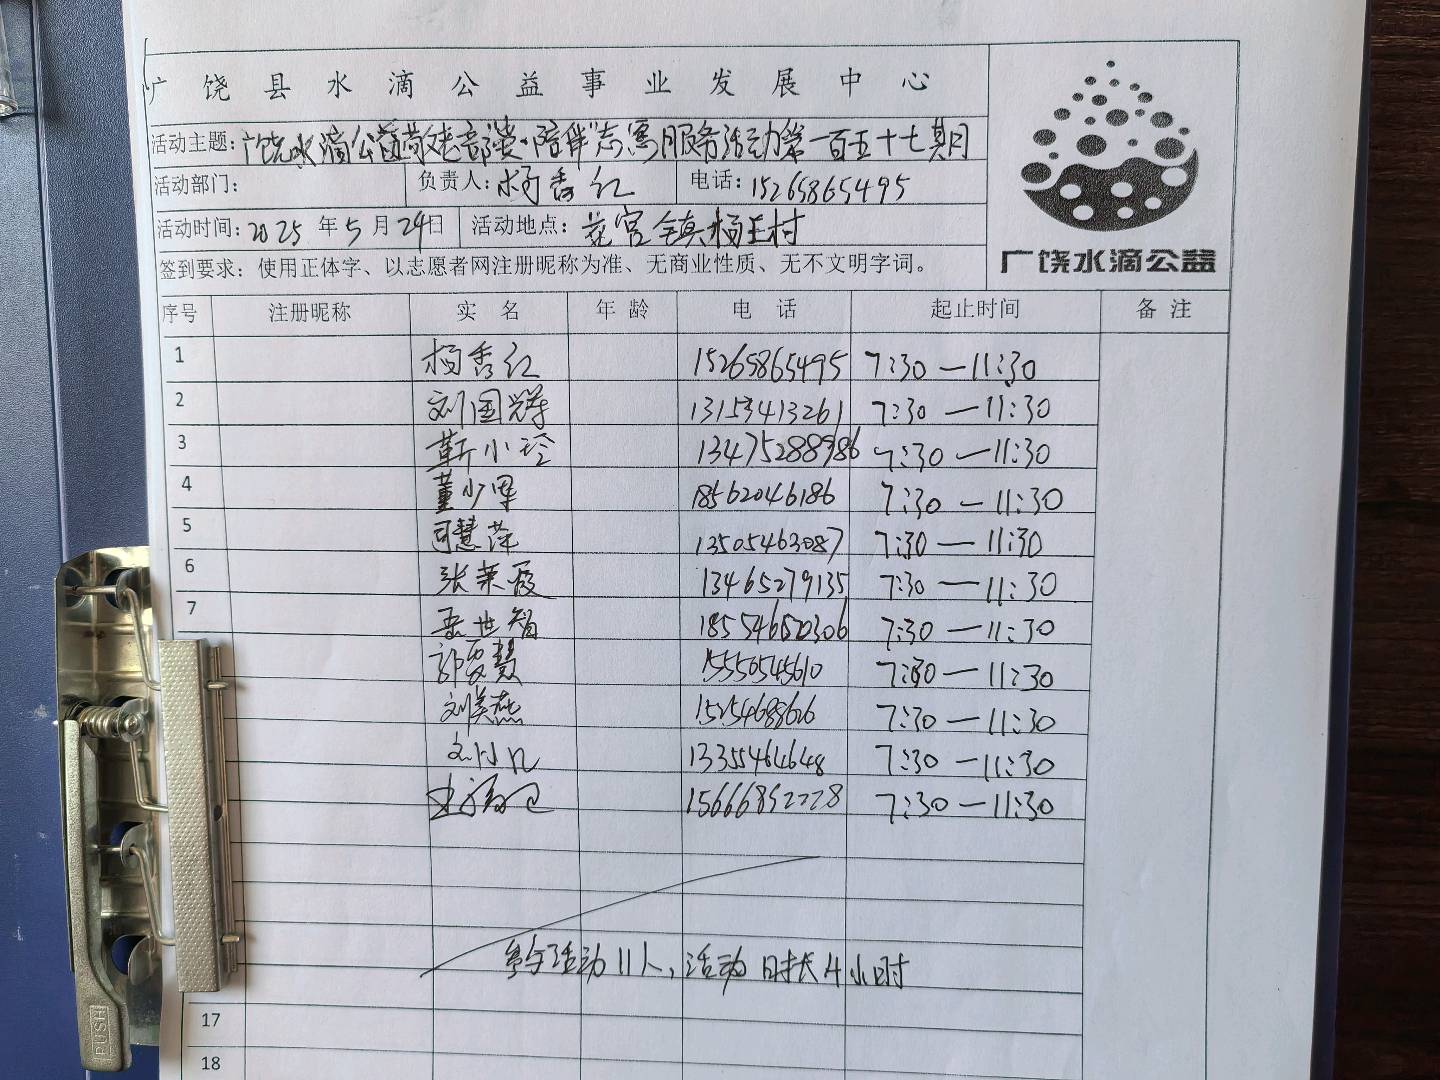 广饶县水滴公益事业发展中心
活动主题：广饶水滴公益敬老音谈·陪伴"志愿服务活动第一百五十七期月
活动部门： 负责人：杨秀红 电话：15265865495
活动时间：2025年5月24日 活动地点：花官镇杨王村
签到要求：使用正体字、以志愿者网注册昵称为准、无商业性质、无不文明字词。
广饶水滴公益
序号 注册昵称 实名 年龄 电话 起止时间 备注
1 杨秀红 15265865495 7:30—11:30
2 刘国辉 13153413261 7:30—11:30
3 靳小玲 13475288986 7:30—11:30
4 董少军 18562046186 7:30—11:30
5 慧萍 13505463087 7:30—11:30
6 张荣霞 13465279135 7:30—11:30
7 岳世智 18554650306 7:30—11:30
郭爱慧 15550545610 7:30—11:30
刘美燕 15254688626 7:30—11:30
刘小 13355464648 7:30—11:30
15666852228 7:30—11:30
参与活动11人，活动时长4小时
17
18
PUSH